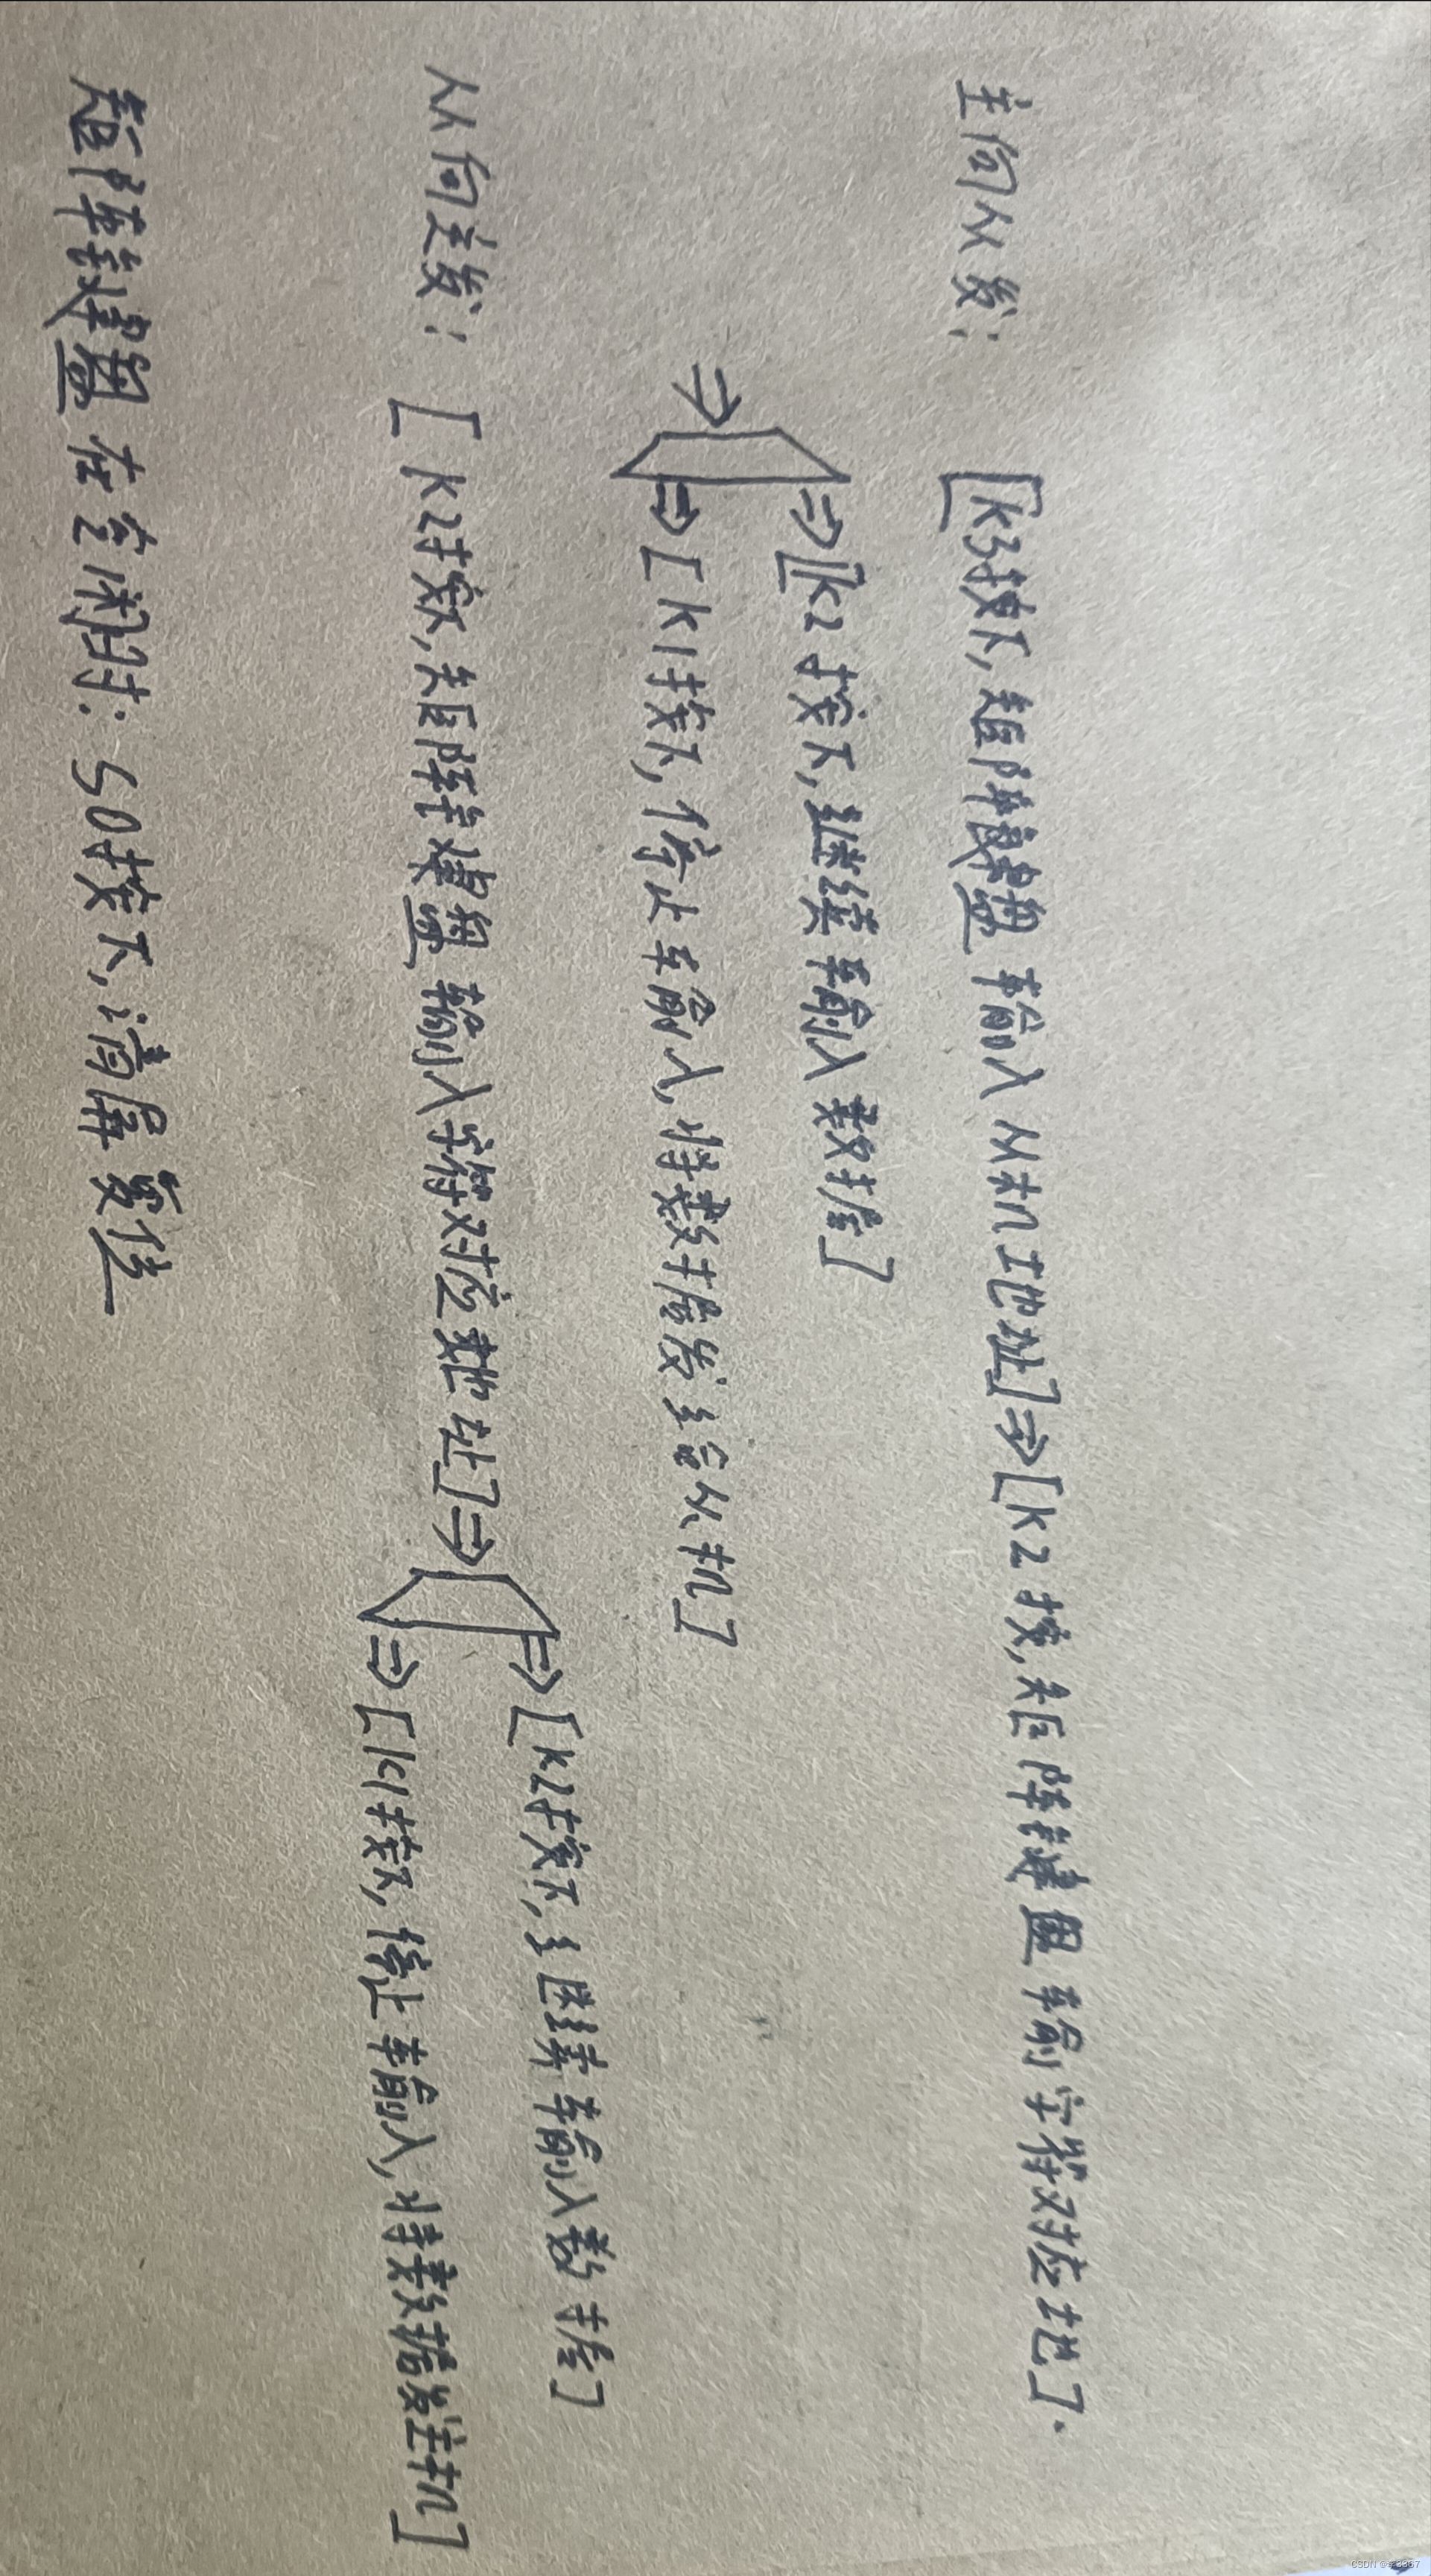 主向从发:
[K3按下,矩阵键盘输入从机地址]⇒[K2按,矩阵键盘输字符对应地].
⇒ ⇒[K2按下,继续输入数据]
⇒[K1按下,停止输入,将数据发给从机]
从向主发: [K2按下,矩阵键盘输入字符对应地址]⇒ ⇒[K2按下,继续输入数据]
⇒[K1按下,停止输入,将数据发主机]
矩阵键盘在空闲时: S0按下,清屏复位